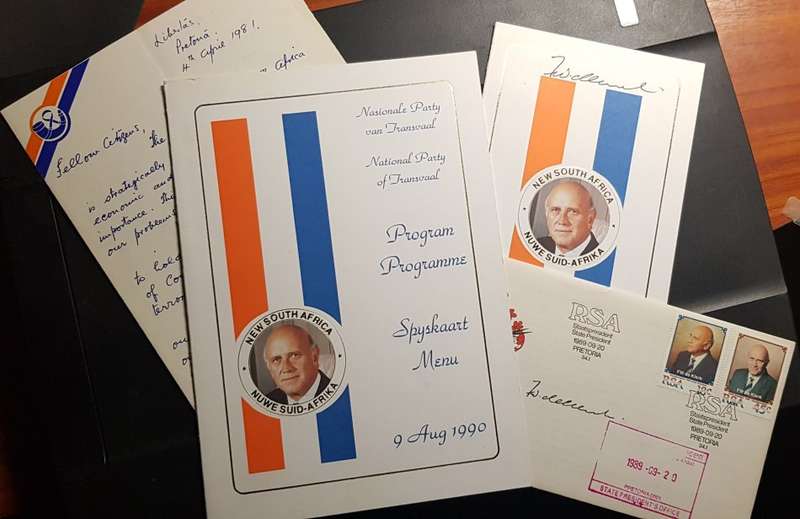 Libertas,
Pretoria.
4th April 1981.
Africa
Fellow Citizens,
The
is strategically
economic and
importance. The
our problems
to
of
terror
Nasionale Party
van Transvaal
National Party
of Transvaal
Program
Programme
Spyskaart
Menu
9 Aug 1990
NEW SOUTH AFRICA
NUWE SUID-AFRIKA
NEW SOUTH AFRICA
NUWE SUID-AFRIKA
RSA
Staatspresident
State President
1989-09-20
PRETORIA
RSA
RSA
RSA
Staatspresident
State President
1989-09-20
PRETORIA
1989-09-20
PRETORIA 0001
STATE PRESIDENT'S OFFICE